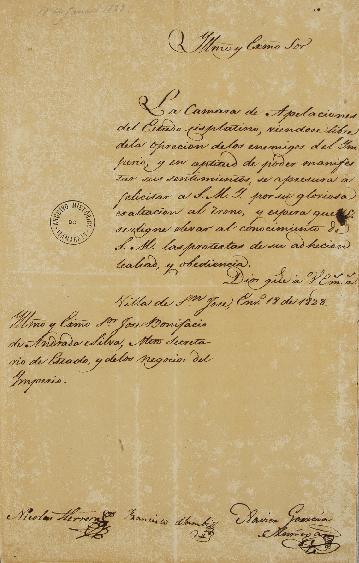 Yllmo y Exmo Sor
La Camara de Apelaciones
del Estado cisplatino, viendose libre
dela opresion de los enemigos del Ym
perio, y en aptitud de poder manifes
tar sus sentimientos, se apresura á
felicitar a S. M. Y. por su gloriosa
exaltacion al trono, y espera que
se digne elevar al conocimiento de
S. M. las protestas de su adhecion
lealtad, y obediencia.
Dios gũe á V. Em.a
Villa de Sn José, En.o 18 de 1823.
Yllmo y Exmo Sor Jose Bonifacio
de Andrada e Silva, Mtro Secreta-
rio de Estado, y delos negocios del
Ymperio.
ARQUIVO HISTÓRICO
DO
ITAMARATY
Nicolas Herrera
Francisco
Garcia